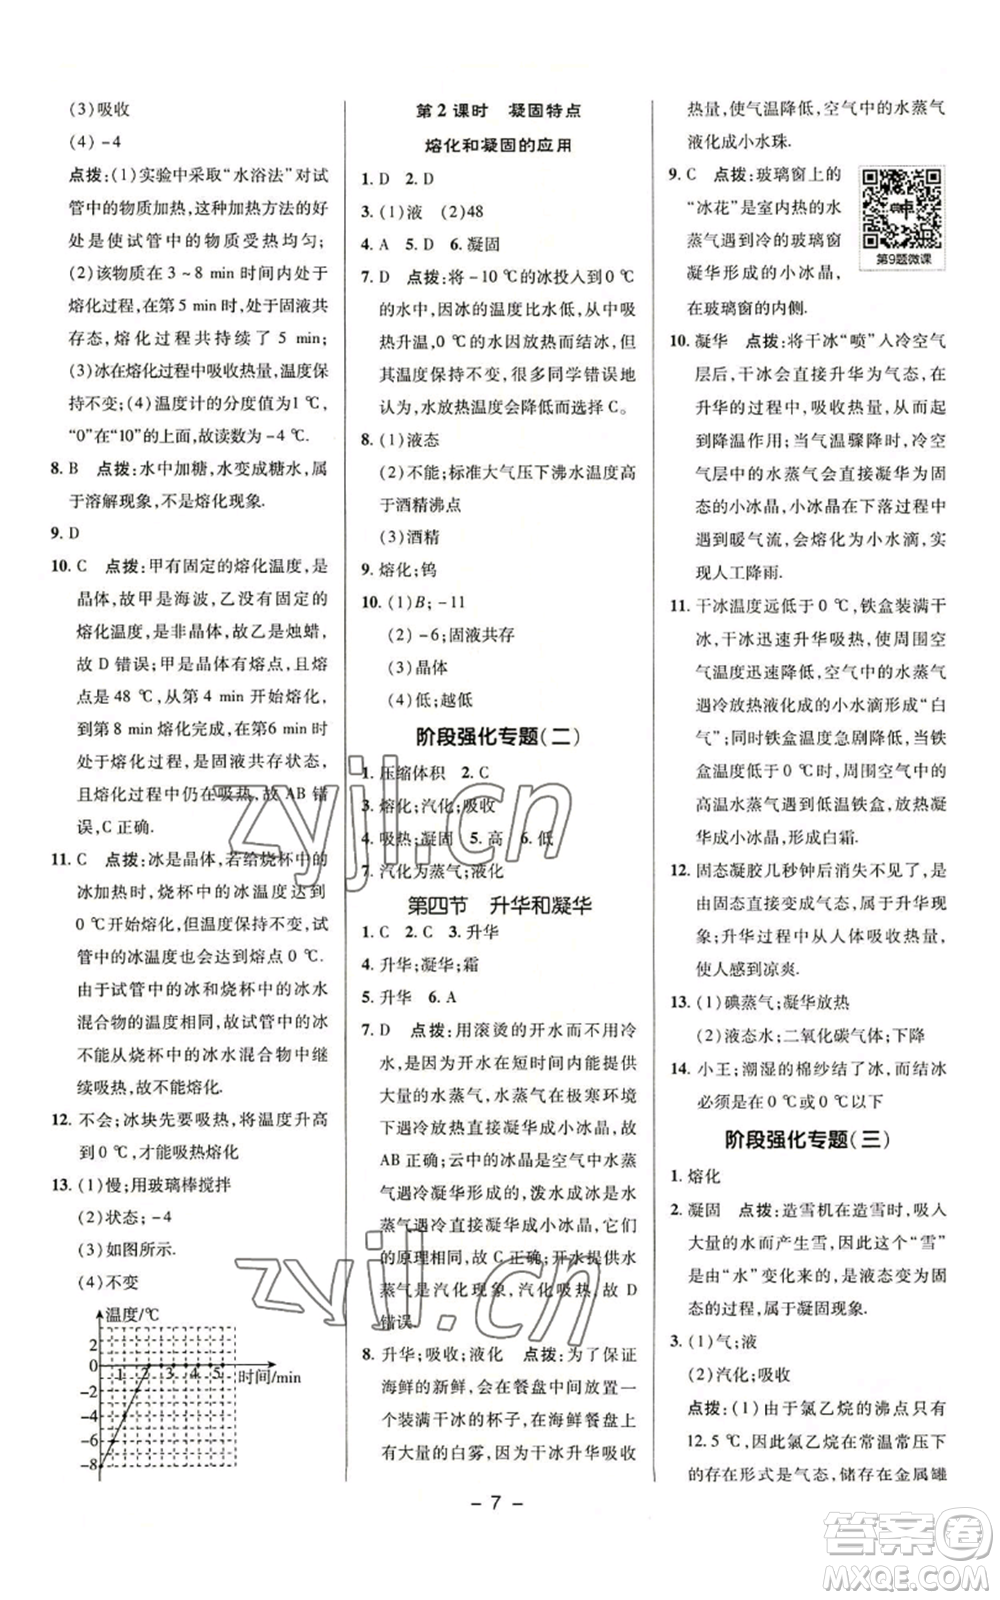 (3)吸收
(4)-4
点拨:(1)实验中采取“水浴法”对试
管中的物质加热,这种加热方法的好
处是使试管中的物质受热均匀;
(2)该物质在 3~8 min 时间内处于
熔化过程,在第 5 min 时,处于固液共
存态,熔化过程共持续了 5 min;
(3)冰在熔化过程中吸收热量,温度保
持不变;(4)温度计的分度值为1 ℃,
“0”在“10”的上面,故读数为-4 ℃.
8. B 点拨:水中加糖,水变成糖水,属
于溶解现象,不是熔化现象.
9. D
10. C 点拨:甲有固定的熔化温度,是
晶体,故甲是海波,乙没有固定的
熔化温度,是非晶体,故乙是烛蜡,
故 D 错误;甲是晶体有熔点,熔点
是 48 ℃,从第 4 min 开始熔化,
到第 8 min 熔化完成,在第6 min 时
处于熔化过程,是固液共存状态,且
熔化过程中仍在吸热,故 AB 错
误,C 正确.
11. C 点拨:冰是晶体,若给烧杯中的
冰加热时,烧杯中的冰温度达到
0 ℃开始熔化,温度保持不变,使
试管中的冰温度也会达到 0 ℃.
由于试管中的冰和烧杯中的冰水
混合物的温度相同,故试管中的冰
不能从烧杯中的冰水混合物中继
续吸热,故不能熔化.
12. 不会;冰块先要吸热,将温度升高
到0 ℃,才能吸热熔化
13. (1)慢;用玻璃棒搅拌
(2)状态;-4
(3)如图所示.
(4)不变
温度/℃
2
0
1 2 3 4 5 时间/min
-2
-4
-6
-8
第 2 课时 凝固特点
熔化和凝固的应用
1. D 2. D
3. (1)液 (2)48
4. A 5. D 6. 凝固
7. D 点拨:将 -10 ℃的冰投入到0 ℃
的水中,冰的温度低于水的温度,冰吸
热升温,0 ℃的水因放热而结冰,但
其温度保持不变,很多同学错误地
认为,水放热温度会降低而选择 C。
8. (1)液态
(2)不能;标准大气压下沸水温度高
于酒精沸点
(3)酒精
9. 熔化;钨
10. (1)B;-11
(2)-6;固液共存
(3)晶体
(4)低;越低
阶段强化专题(二)
1. 压缩体积 2. C
3. 熔化;汽化;吸收
4. 吸热;凝固 5. 高 6. 低
7. 汽化为蒸气;液化
第四节 升华和凝华
1. C 2. C 3. 升华
4. 升华;凝华;霜
5. 升华 6. A
7. D 点拨:用滚烫的开水而不用冷
水,是因为开水在短时间内能提供
大量的水蒸气,水蒸气在极寒环境
下遇冷放热直接凝华成小冰晶,故
AB 正确;云中的冰晶是空气中水蒸
气遇冷凝华形成的,泼水成冰是水
蒸气遇冷直接凝华成小冰晶,它们
的原理相同,故 C 正确;开水变成水
蒸气是汽化现象,汽化吸热,故 D
错误.
8. 升华;吸收;液化 点拨:为了保证
海鲜的新鲜,会在餐盘中放置一个
盛有干冰的杯子,在海鲜餐盘上有
大量的白雾,因为干冰升华吸收
热量,使气温降低,空气中的水蒸气
液化成小水珠.
9. C 点拨:玻璃窗上的
“冰花”是室内热的水
蒸气遇到冷的玻璃窗
凝华形成的小冰晶,
在玻璃窗的内侧.
第9题微课
10. 凝华 点拨:将干冰“喷”人冷空气
层后,干冰会直接升华为气态,在
升华的过程中,吸收热量,从而起
到降温作用;当气温骤降时,冷空
气层中的水蒸气会直接凝华为固
态的小冰晶,小冰晶在下落过程中
遇到暖气流,会熔化为小水滴,实
现人工降雨.
11. 干冰温度远低于0 ℃,铁盒装满干
冰,干冰迅速升华吸热,使周围空
气温度迅速降低,空气中的水蒸气
遇冷放热液化成的小水滴形成“白
气”;同时铁盒温度急剧降低,如果
铁盒温度低于0 ℃时,周围空气中的
高温水蒸气遇到低温铁盒,放热凝
华成小冰晶,形成白霜.
12. 固态凝胶几秒钟后消失不见了,是
由固态直接变成了气态,属于升华现
象;升华过程中从人体吸收热量,
使人感到凉爽.
13. (1)碘蒸气;凝华放热
(2)液态水;二氧化碳气体;下降
14. 小王;潮湿的棉纱结了冰,而结冰
必须是在 0 ℃或0 ℃以下
阶段强化专题(三)
1. 熔化
2. 凝固 点拨:造雪机在造雪时,吸入
大量的水而产生雪,因此这个“雪”
是由“水”变化来的,是液态变为固
态的过程,属于凝固现象.
3. (1)气;液
(2)汽化;吸收
点拨:(1)由于氯乙烷的沸点只有
12.5 ℃,因此氯乙烷在常温常压下
的存在形式是气态,储存在金属罐
- 7 -
zyjl.cn
zyjl.cn
答案卷
MXQE.COM